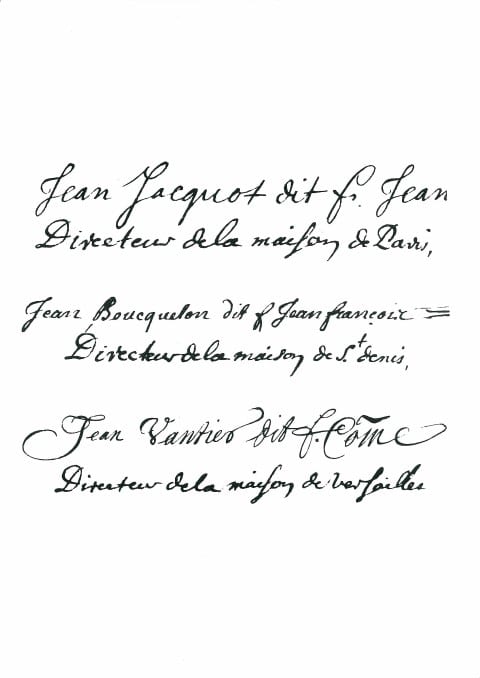 Jean Jacquot dit f. Jean
Directeur de la maison de Paris,
Jean Boucquelon dit f Jean françois =
Directeur de la maison de St denis,
Jean Vantier dit f. Côme
Directeur de la maison de versailles